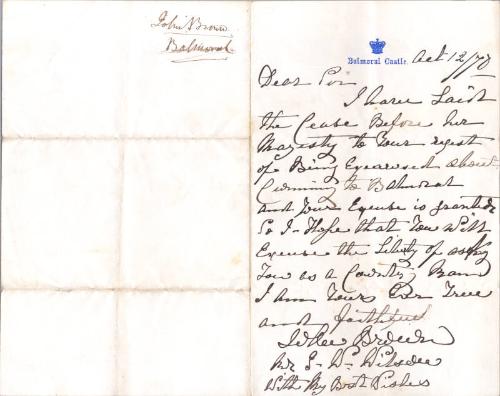 John Brown
Balmoral
Balmoral Castle. Oct 12/78
Dear Sir
I have Laid
the Cease Before her
Majesty to Your
of Being about
Cumming to Balmoral
and Your Excuse is granted
So I Hope that You Will
Excuse the Liberty of asking
You as a Country Man
I am Yours Ever True
and faithful
John Brown
Mr
With My Best Wishes